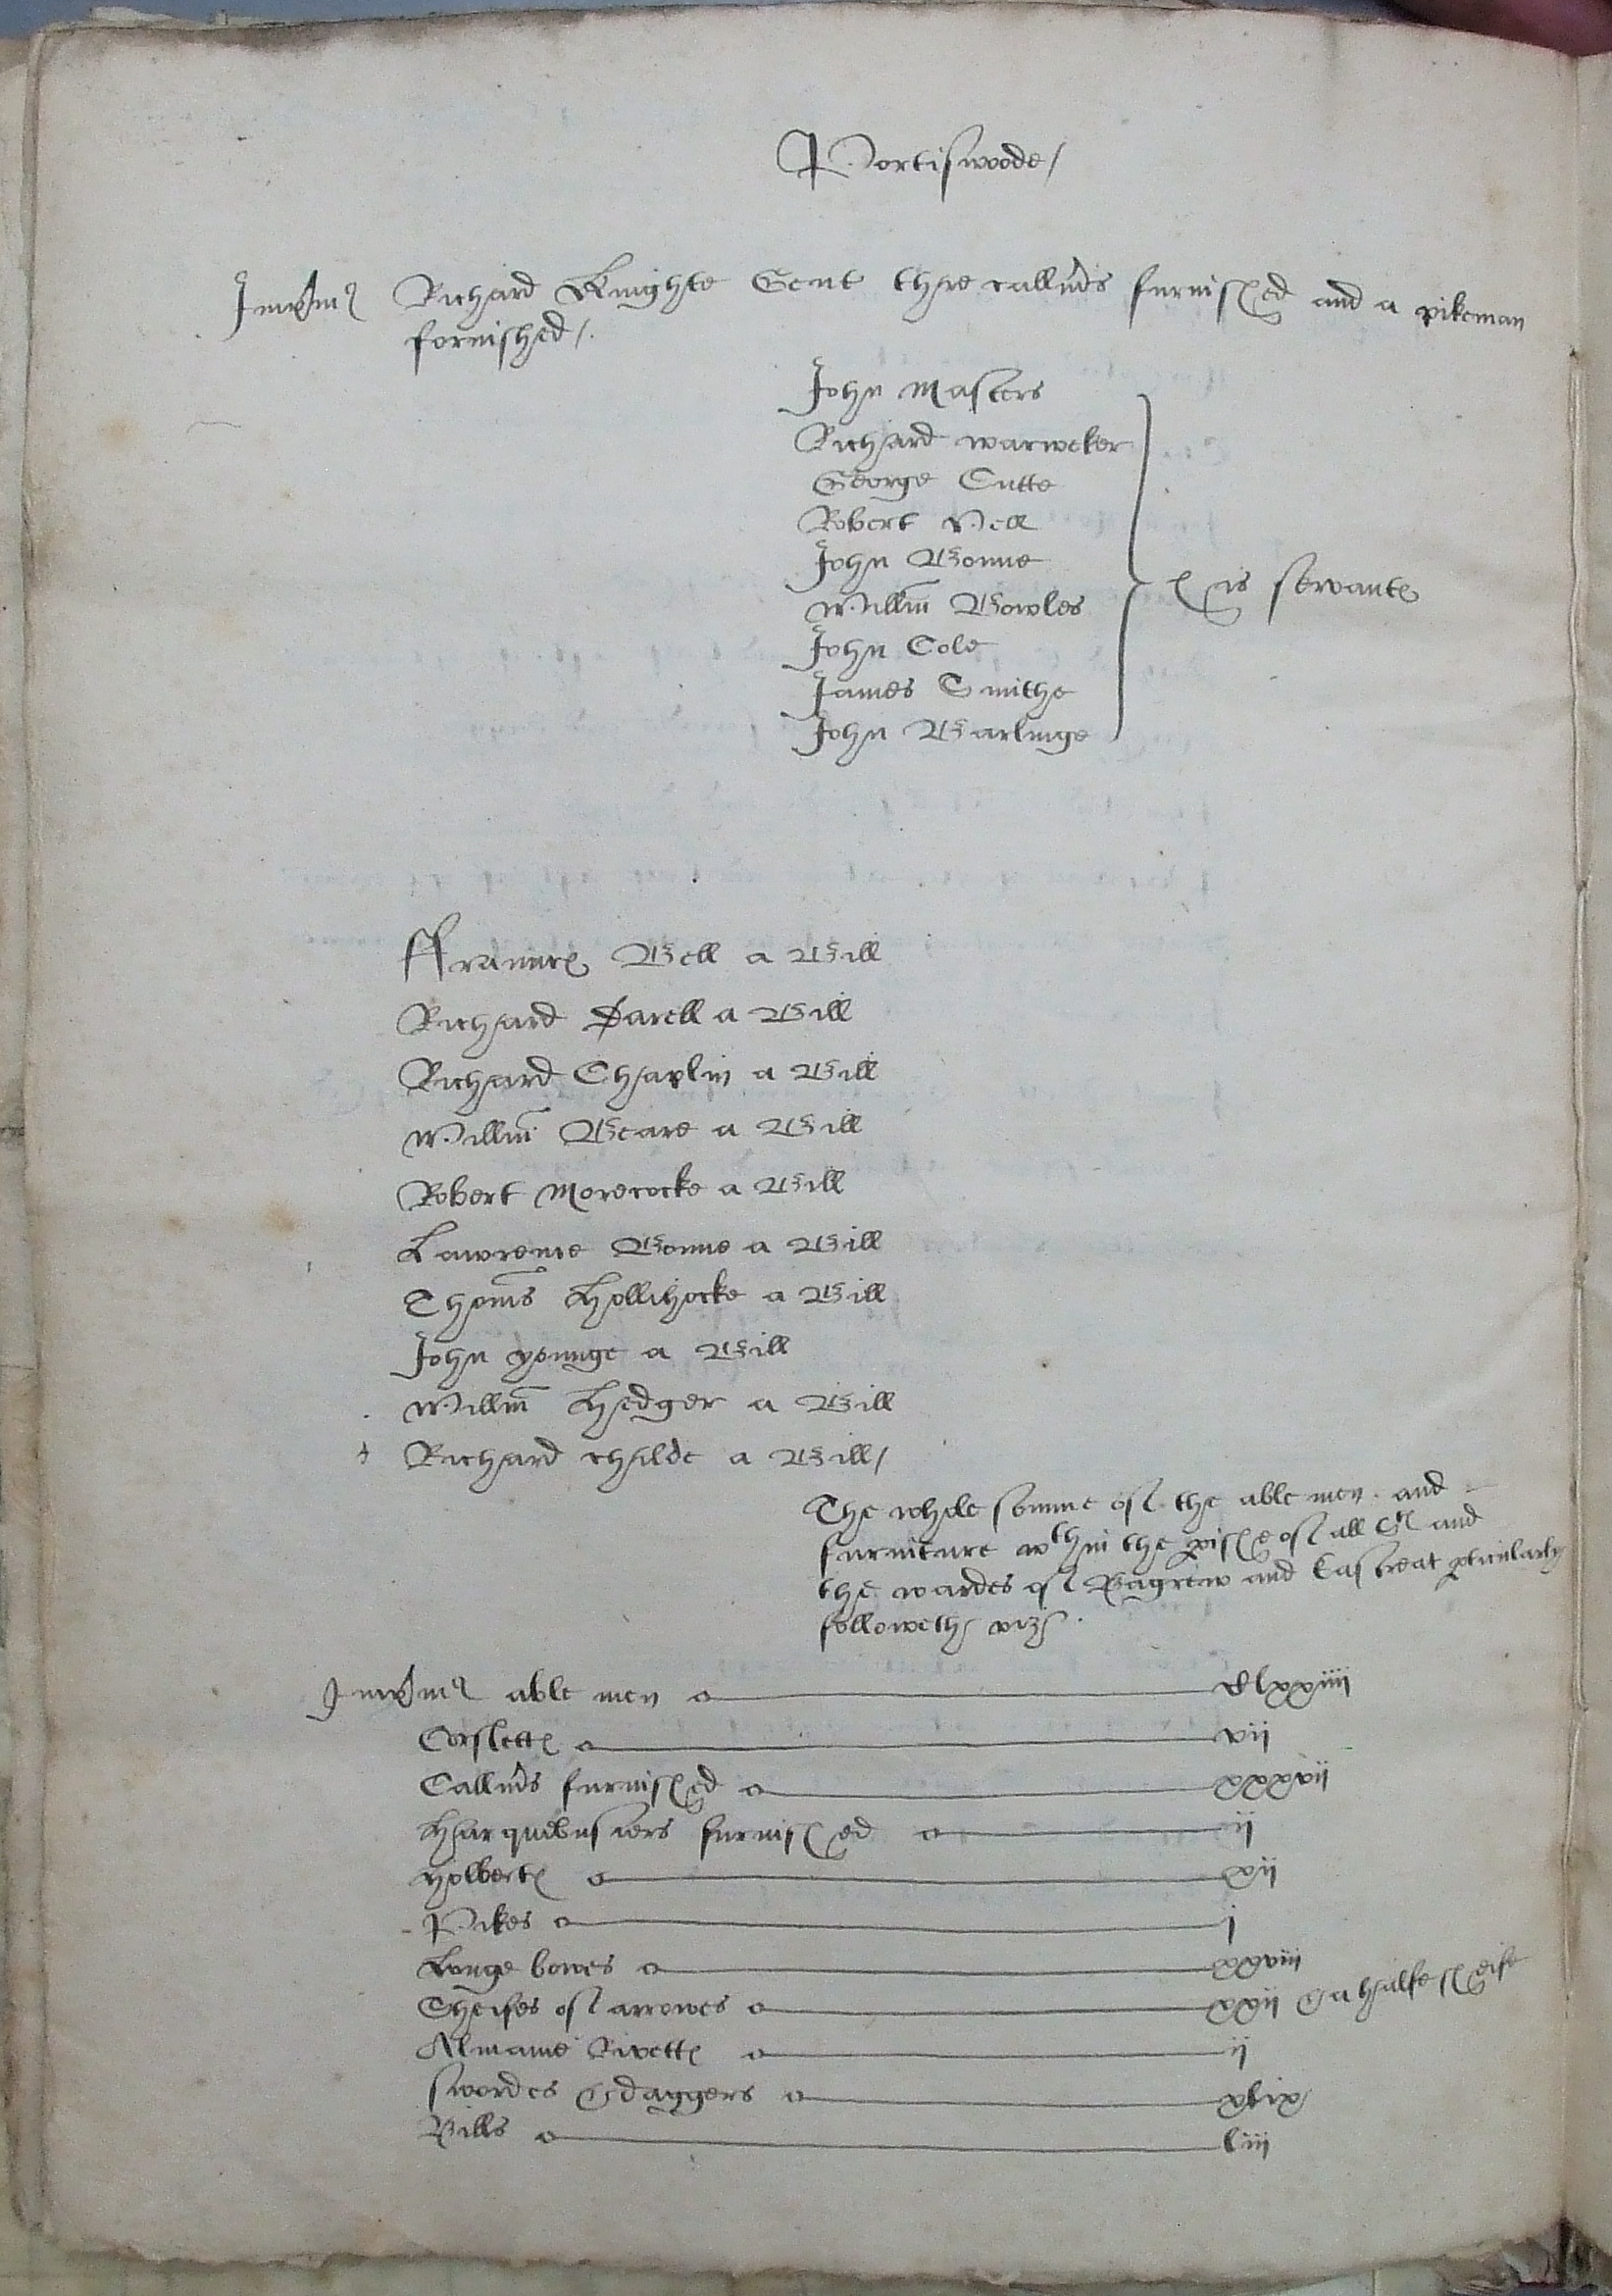 Portiswoode /
Imprimis Richard Knighte Gent thre callivds furnished and a pikeman
fornished /.
John Masters
Richard warweker
George Cutte
Robert Pell
John Bonne
Willm Bowles
John Cole
James Smithe
John Barlinge
his servantes
Frannces Bell a Bill
Richard Darell a Bill
Richard Chaplin a Bill
Willm Beare a Bill
Robert Morecocke a Bill
Lawrence Bonne a Bill
Thoms Hollihocke a Bill
John younge a Bill
Willm Hedger a Bill
Richard childe a Bill /
The whole somme of the able men and
furniture wthin the pishe of all Stes and
the wardes of Bagrew and Eastreat pticularly
followeth viz
Imprimis able men clxxiiii
Corslettes vii
Callivds furnished xxxvii
Harquebusiers furnished ii
holbertes xii
Pikes j
Longe bowes xxviii
Sheifes of arrowes xxii & a halfe sheife
Almaine Rivettes ii
swordes & daggers xlix
Bills liii